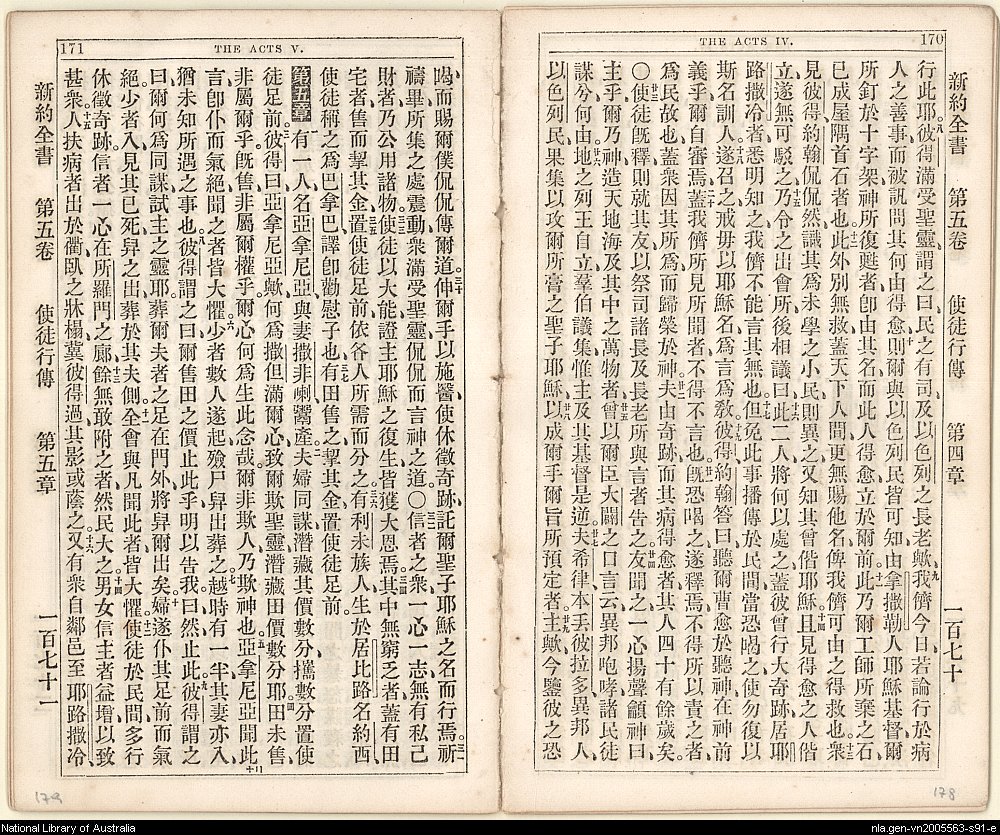 THE ACTS IV. 170
新約全書 第五卷 使徒行傳 第四章 一百七十
行此耶、八彼得滿受聖靈、謂之曰、民之有司及以色列之長老歟、九我儕今日若論行於病
人之善事而被訊問、其何由得愈、十則爾與以色列民皆可知、由拿撒勒人耶穌基督、爾
所釘於十字架、神所復甦者、卽由其名而此人得愈、立於爾前、十一此乃爾工師所棄之石、
已成屋隅首石者也、十二此外別無救、蓋天下人間、更無賜他名、俾我儕可由之得救也、十三衆
見彼得約翰侃侃然、識其爲未學之小民、則異之、又知其曾偕耶穌、十四且見得愈之人偕
立、遂無可駁之、十五乃令之出會所、後相議曰、十六此二人將何以處之、蓋彼曾行大奇跡、居耶
路撒冷者悉明知之、我儕不能言其無也、十七但免此事播傳於民間、當恐喝之、使勿復以
斯名訓人、十八遂召之、戒毋以耶穌名爲言爲敎、十九彼得約翰答曰、聽爾曹愈於聽神、在神前
義乎、爾自審焉、二十蓋我儕所見所聞者、不得不言也、廿一旣恐喝之、遂釋焉、不得所以責之者、
爲民故也、蓋衆因其所爲而歸榮於神、廿二夫由奇跡而其病得愈者、其人四十有餘歲矣、
〇廿三使徒旣釋、則就其友、以祭司諸長及長老所與言者告之、廿四友聞之、一心揚聲籲神曰、
主乎、爾乃神、造天地海及其中之萬物者、廿五曾以爾臣大闢之口言云、異邦咆哮、諸民徒
謀、兮何由、廿六地之列王自立、羣伯議集、惟主及其基督是逆、廿七夫希律、本丟彼拉多、異邦人、
以色列民、果集以攻爾所膏之聖子耶穌、廿八以成爾手爾旨所預定者、廿九主歟、今鑒彼之恐
171 THE ACTS V.
喝、而賜爾僕侃侃傳爾道、三十伸爾手以施醫、使休徵奇跡、託爾聖子耶穌之名而行焉、三一祈
禱畢、所集之處震動、衆滿受聖靈、侃侃而言神之道、〇三二信者之衆、一心一志、無有私己
財者、乃公用諸物、三三使徒以大能證主耶穌之復生、皆獲大恩焉、三四其中無窮乏者、蓋有田
宅者、售而挈其金、三五置使徒足前、依各人所需而分之、三六有利未族人、生於居比路、名約西、
使徒稱之爲巴拿巴、譯卽勸慰子也、三七有田售之、挈其金置使徒足前、
第五章 一有一人名亞拿尼亞、與妻撒非喇鬻產、二夫婦同謀、潛藏其價數分、攜數分置使
徒足前、三彼得曰、亞拿尼亞歟、何爲撒但滿爾心、致爾欺聖靈、潛藏田價數分耶、四田未售、
非屬爾乎、旣售、非屬爾權乎、爾心何爲生此念哉、爾非欺人、乃欺神也、五亞拿尼亞聞此
言、卽仆而氣絕、聞之者皆大懼、六少者數人遂起、殮尸舁出葬之、七越時有一半、其妻亦入、
猶未知所遇之事也、八彼得謂之曰、爾售田之價止此乎、明以告我、曰、然、止此、九彼得謂之
曰、爾何爲同謀試主之靈耶、葬爾夫者之足在門外、將舁爾出矣、十婦遂仆其足前而氣
絕、少者入、見其已死、舁之出、葬於其夫側、十一全會與凡聞此者、皆大懼、十二使徒於民間多行
休徵奇跡、信者一心在所羅門之廊、十三餘無敢附之者、然民大之、十四男女信主者益增、以致
甚衆、十五人扶病者出於衢、臥之牀榻、冀彼得過、其影或蔭之、十六又有衆自鄰邑至耶路撒冷、
新約全書 第五卷 使徒行傳 第五章 一百七十一
179
178
National Library of Australia
nla.gen-vn2005563-s91-e